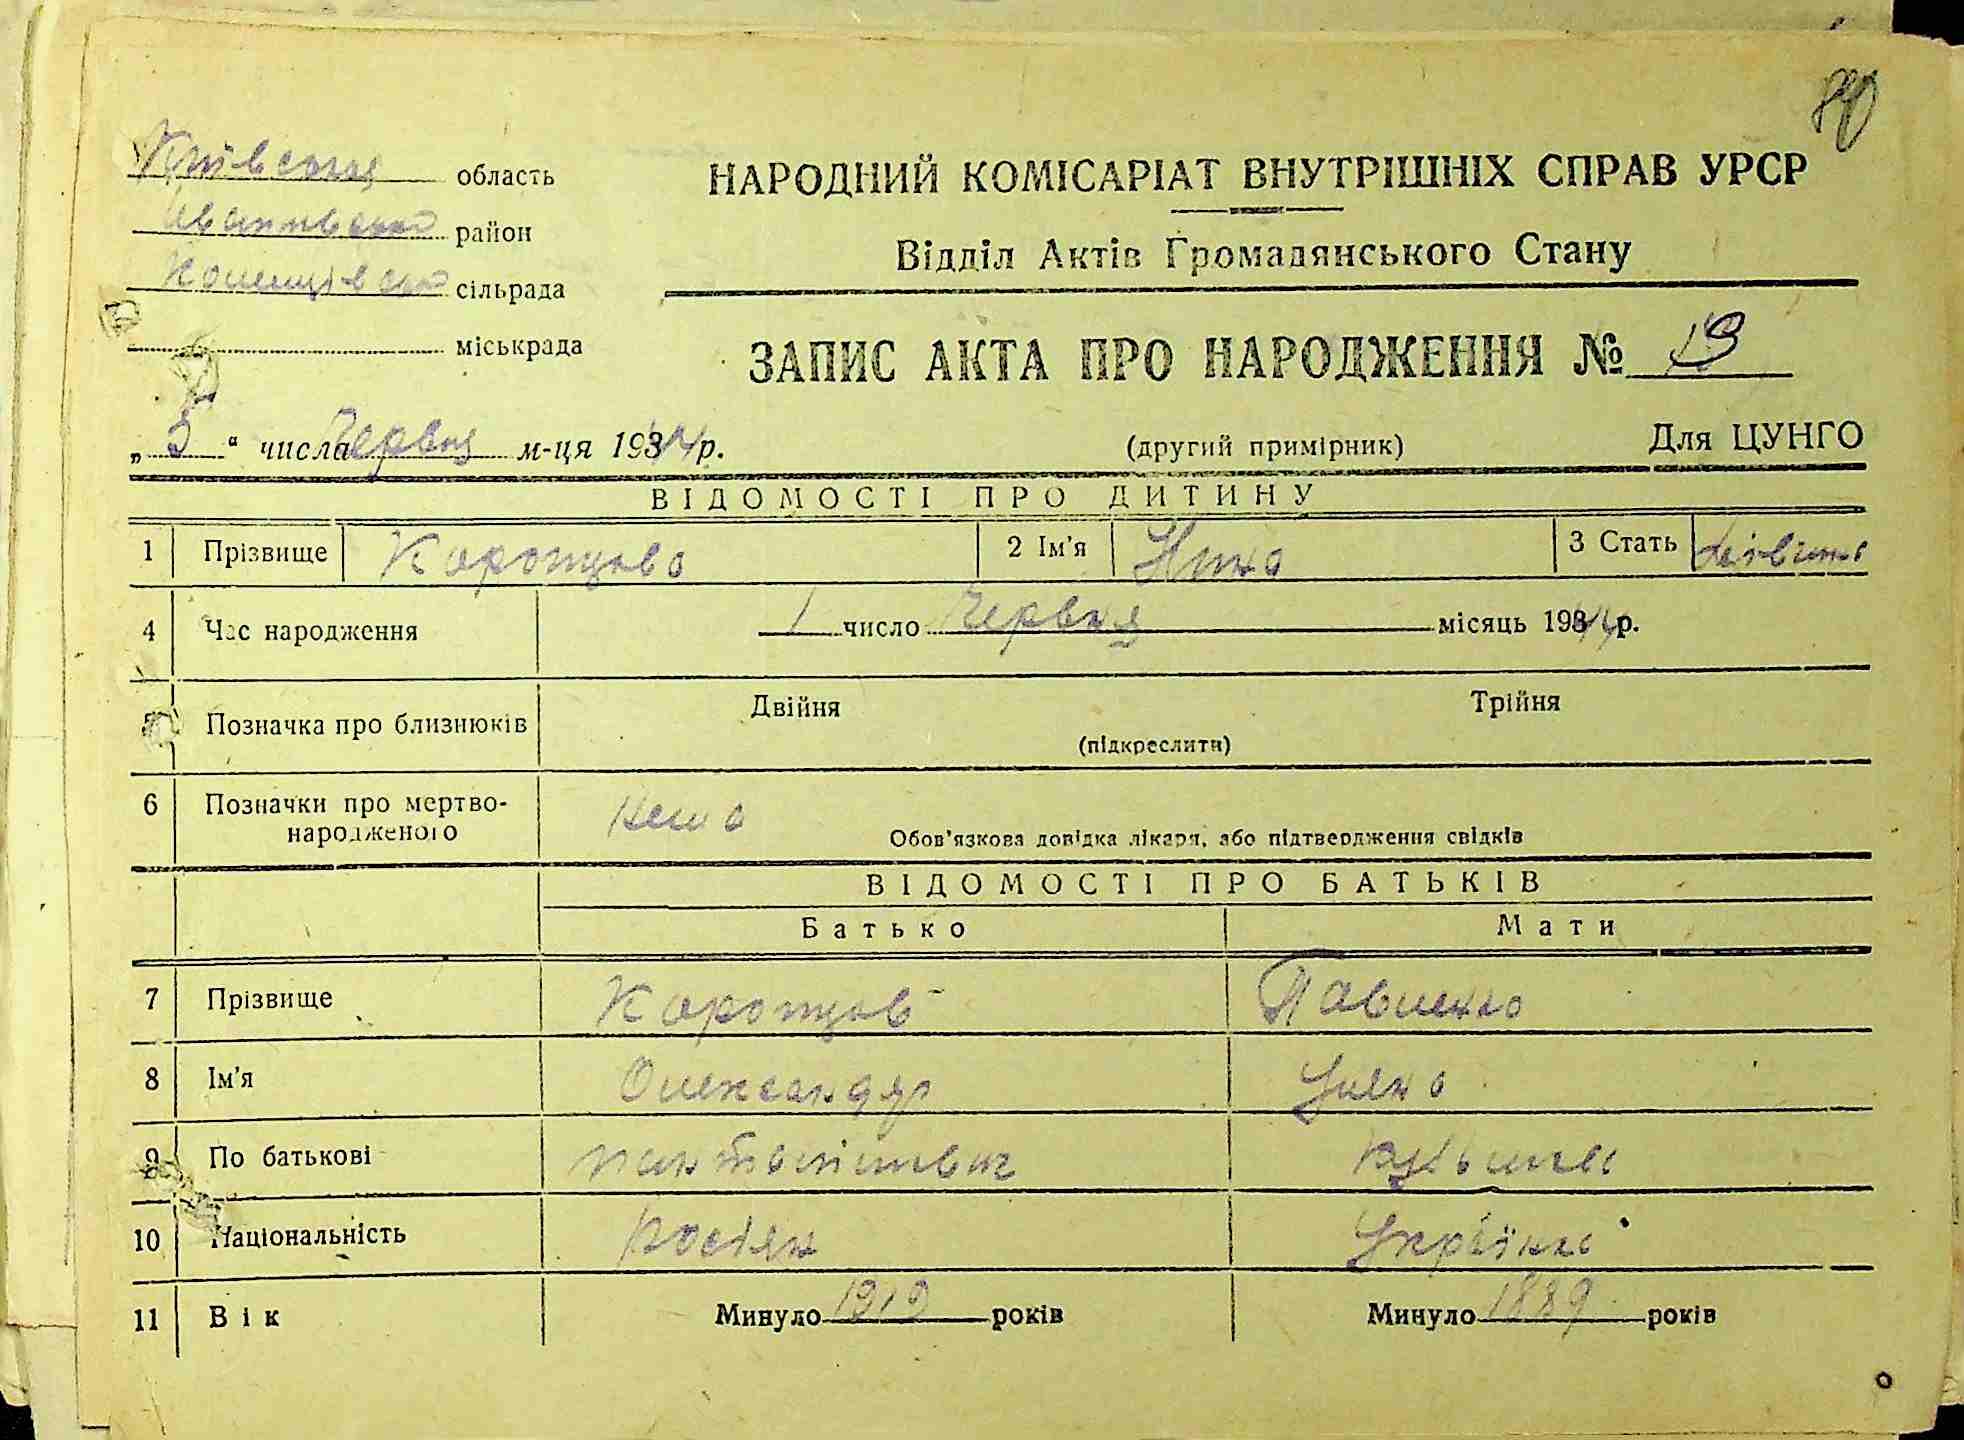 80
Київська область
Іванківський район
сільрада
міськрада
НАРОДНИЙ КОМІСАРІАТ ВНУТРІШНІХ СПРАВ УРСР
Відділ Актів Громадянського Стану
ЗАПИС АКТА ПРО НАРОДЖЕННЯ № 19
„ 5 " числа Червня м-ця 1944 р.
(другий примірник)
Для ЦУНГО
ВІДОМОСТІ ПРО ДИТИНУ
1 Прізвище Коропцова 2 Ім'я Нина 3 Стать
4 Час народження 1 число Червня місяць 1944 р.
5 Позначка про близнюків Двійня Трійня
(підкреслити)
6 Позначки про мертво-
народженого Нема Обов'язкова довідка лікаря, або підтвердження свідків
ВІДОМОСТІ ПРО БАТЬКІВ
Батько Мати
7 Прізвище Коропцов Павленко
8 Ім'я Олександр Уляна
9 По батькові
10 Національність Росіян Українка
11 Вік Минуло 1919 років Минуло 1889 років